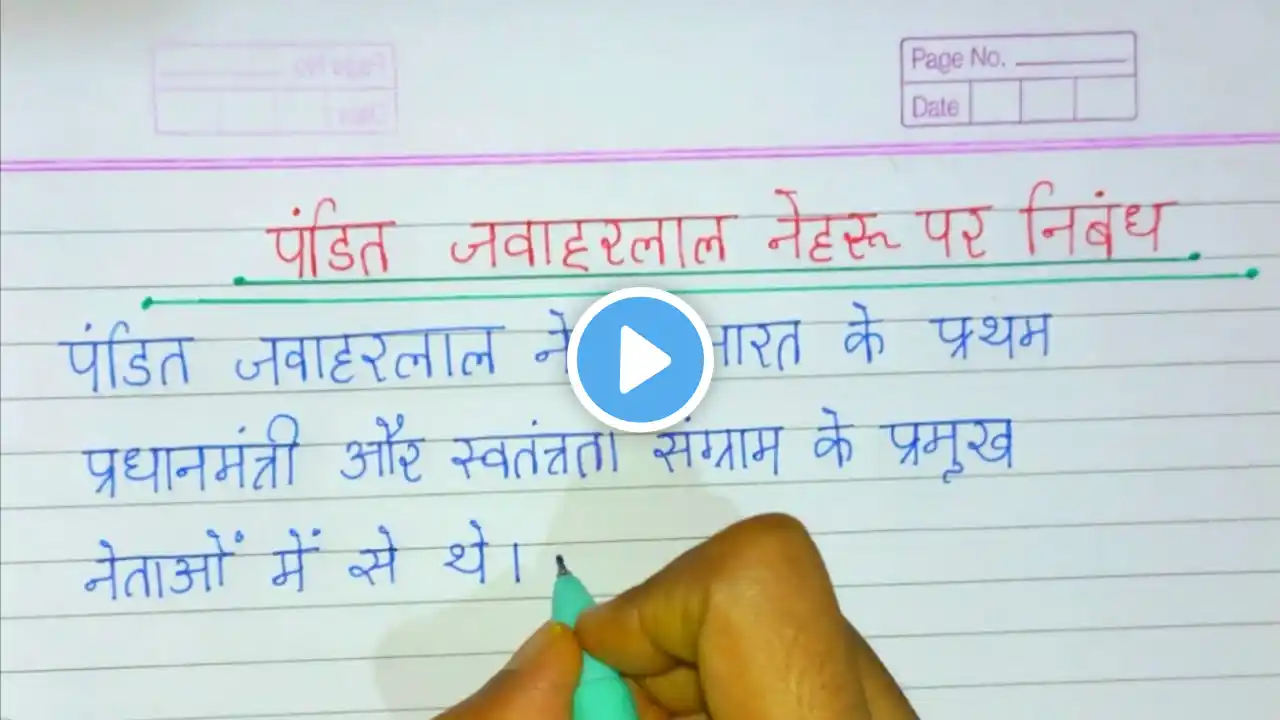 Page No.
Date
पंडित जवाहरलाल नेहरू पर निबंध
पंडित जवाहरलाल के प्रथम
प्रधानमंत्री और स्वतंत्रता संग्राम के प्रमुख
नेताओं में से थे।